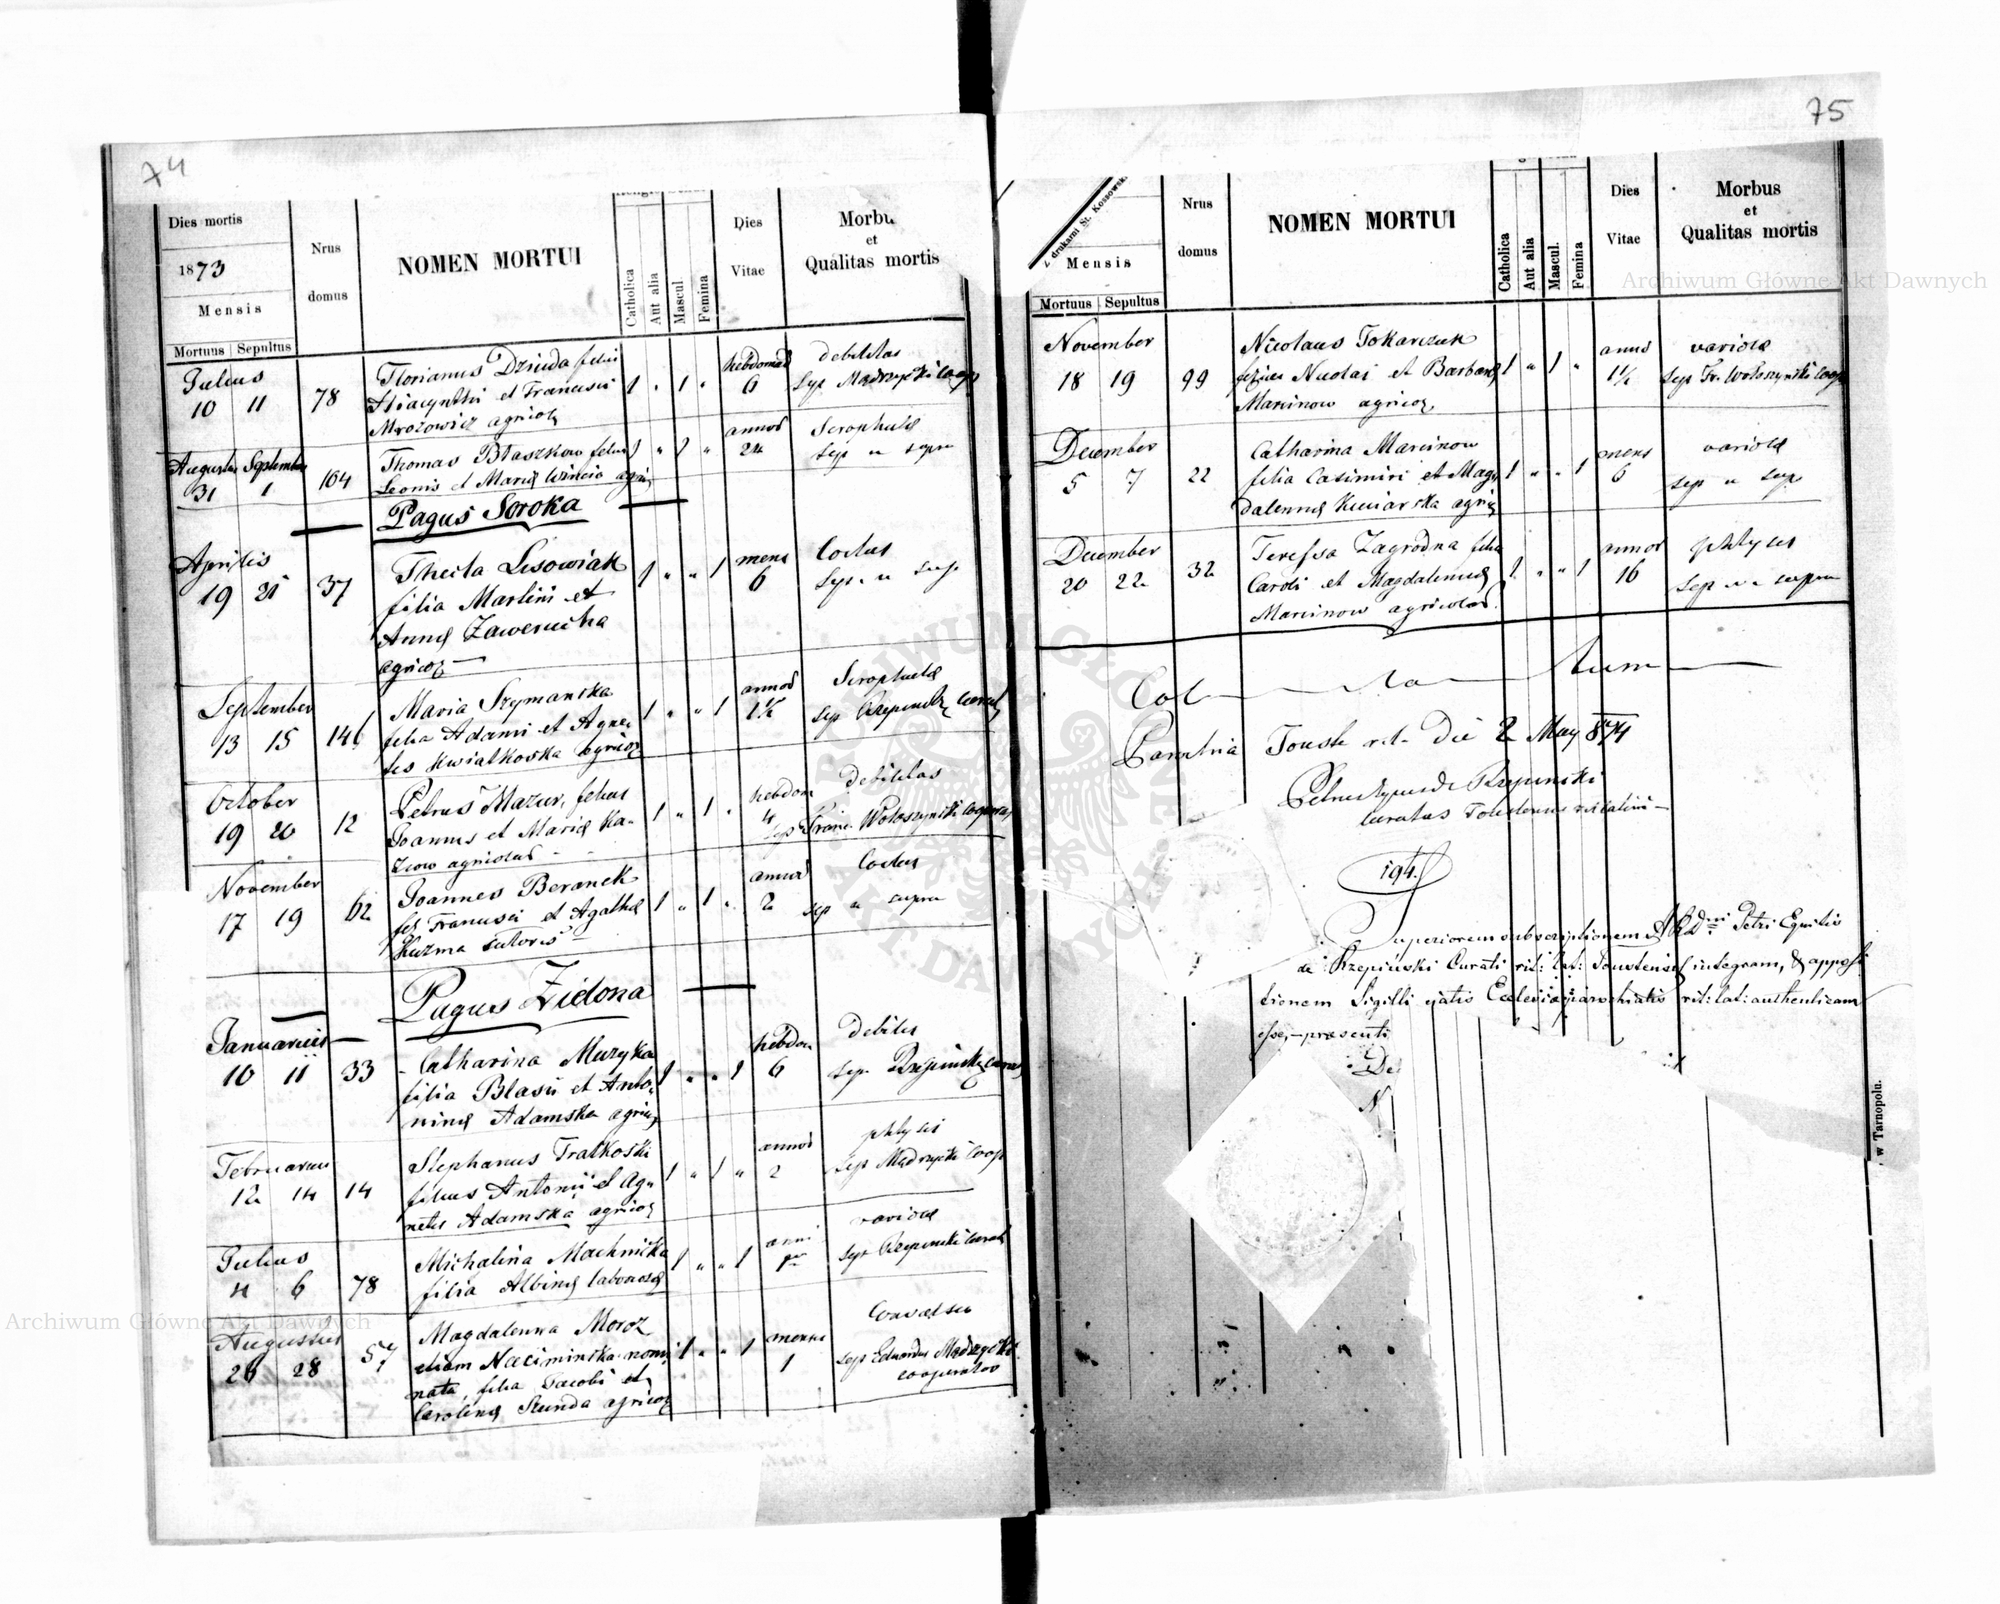 74
Dies mortis
1873
Mensis
Mortuus Sepultus
Nrus
domus
NOMEN MORTUI
Catholica
Aut alia
Mascul.
Femina
Dies
Vitae
Morbu
et
Qualitas mortis
Julius
10 11 78
Florianus Dziuda filius
Hiacynthi et Francisci
Mrozowicz agricolę
1 " 1 "
hebdomad
6
debilitas
Sep Mądrzycki Coop
Augustus Septembr
31 1 104
Thomas Błaszkow filius
Leonis et Marię
1 " 1 "
annor
24
Scrophulę
Sep u supra
Pagus Soroka
Aprilis
19 21 37
Thecla Lisowiak
filia Martini et
Annę Zawerucha
agricolę
1 " " 1
mens
6
Coctus
Sep u sup
September
13 15 146
Maria Szymanska
filia Adami et Agne-
tis Kwiatkoska agricolę
1 " " 1
annor
1½
Scrophulę
sep Rzepinski Curat
October
19 20 12
Petrus Mazur, filius
Joannis et Marię Ka-
agricolar
1 " 1 "
hebdom
4
debilitas
Sep Franc. Wołoszyński Cooperat
November
17 19 62
Joannes Beranek
fil Francisci et Agathę
Kuzma sutoris
1 " 1 "
annor
2
Coctus
sep u supra
Pagus Zielona
Januarius
10 11 33
Catharina Muzyka
filia Blasii et Anto-
ninę Adamska agricolę
1 " " 1
hebdom
6
debilis
sep Rzepinski Curat
Februarius
12 14 14
Stephanus Fratkoski
filius Antonii et Ag-
netis Adamska agricolę
1 " 1 "
annor
2
phtysis
sep Mądrzycki Coop
Julius
4 6 78
Michalina Machnicka
filia Albinę laboriosę
1 " " 1
variolę
sep Rzepinski Curat
Augustus
26 28 57
Magdalenna Moroz
etiam Naciminska nomi-
nata, filia Jacobi et
Carolinę Skunda agricolę
1 " " 1
mensis
1
sep Eduardus Mądrzycki
cooperator
75
drukarni St. Kossowski
Mensis
Mortuus Sepultus
Nrus
domus
NOMEN MORTUI
Catholica
Aut alia
Mascul.
Femina
Dies
Vitae
Morbus
et
Qualitas mortis
November
18 19 99
Nicolaus Tokarczuk
filius Nicolai et Barbarę
Marcinow agricolę
1 " 1 "
annus
1½
variolę
Sep Fr. Wołoszyński Coop
December
5 7 22
Catharina Marcinow
filia Casimiri et Mag-
dalennę Kuciarska agricolę
1 " " 1
mens
6
variolę
sep u sup
December
20 22 32
Teressa Zagrodna filia
Caroli et Magdalennę
Marcinow agricolar
1 " " 1
annor
16
phtysis
Sep u supra
Col la tum
Parochia Touste r.l. Die 2 May 874
Petrus Eques de Rzepinski
Curatus Toustensis rit latini
194.
Superiorem subscriptionem ARDni Petri Equitis
de Rzepiński Curati rit: lat: Toustensis integram, & apposi
tionem Sigilli ejatis Ecclesia parochialis rit: lat: authenticam
esse, - praesenti
De
N
w Tarnopolu.
Archiwum Główne Akt Dawnych
Archiwum Główne Akt Dawnych
ARCHIWUM GŁÓWNE AKT DAWNYCH